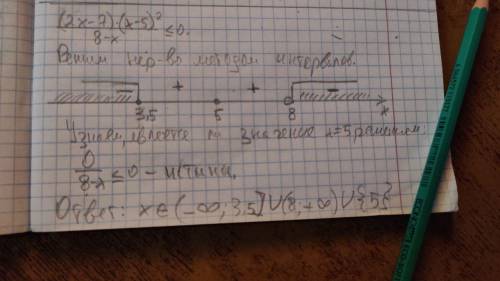 (2x-7)·(x-5)²
8-x
≤0.
Решим нер-во методом интервалов.
− + + −
3,5 5 8 x
Узнаем, является ли значение x=5 решением:
0
8-x
≤0 - истина,
Ответ: x∈(-∞; 3,5]∪(8; +∞)∪{5}